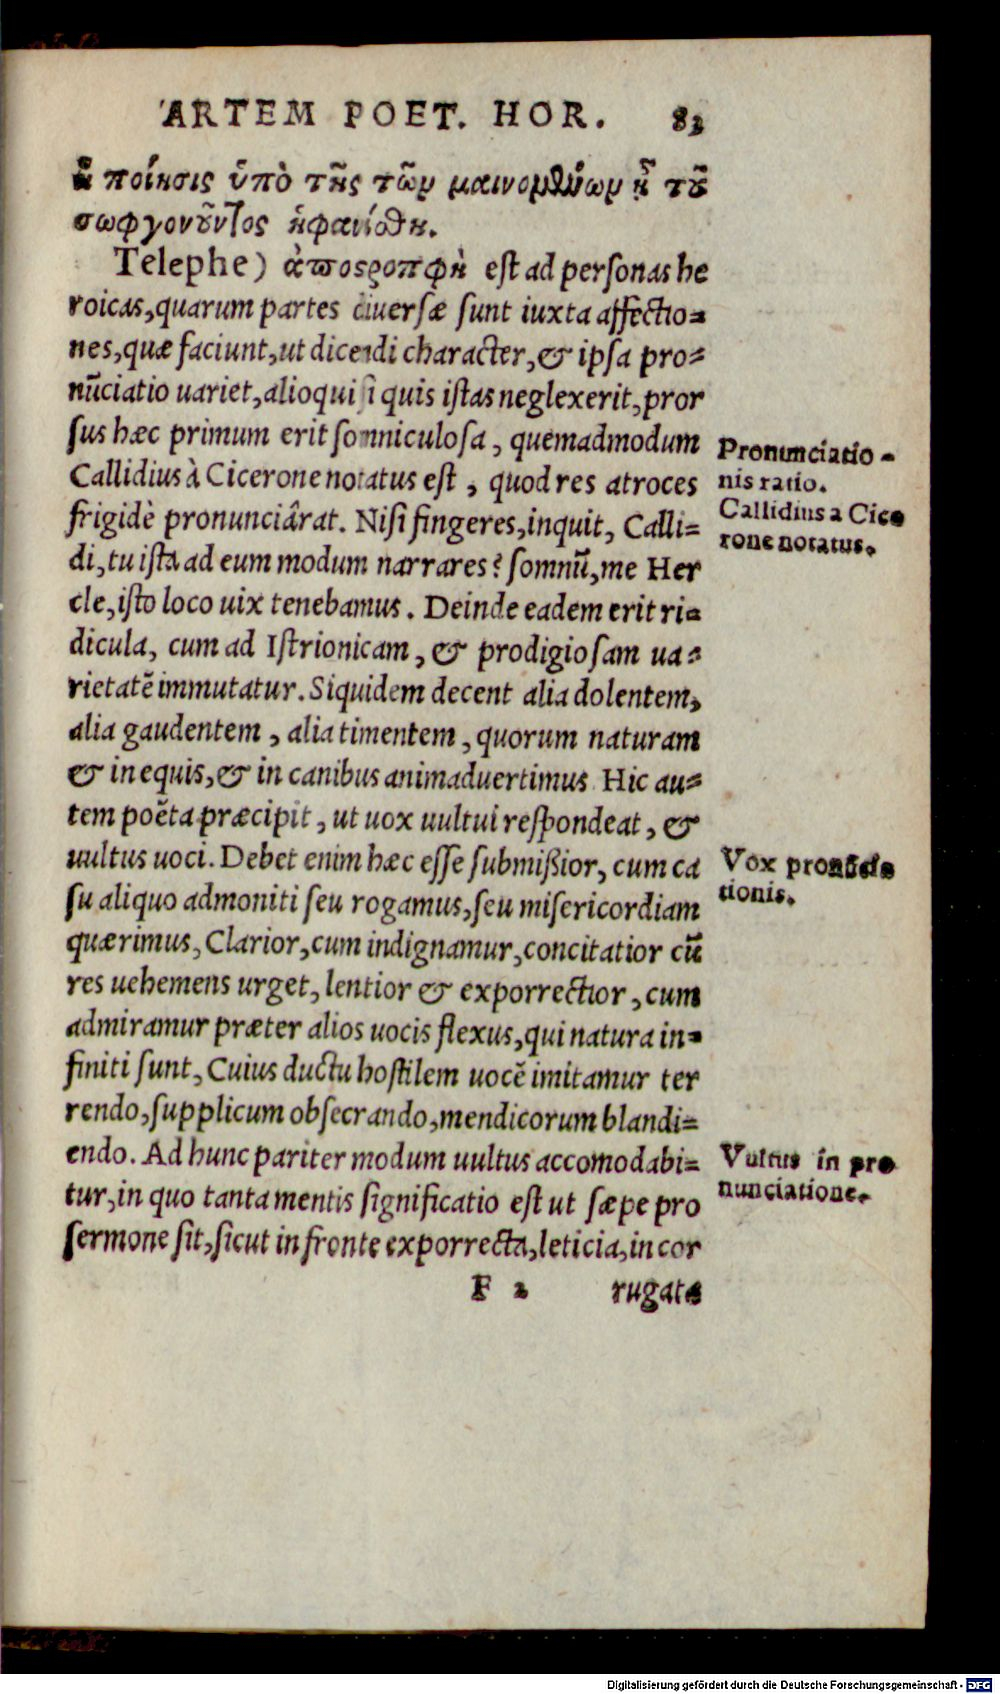 ARTEM POET. HOR. 83
ἡ ποίησις ὑπὸ τῆς τῶν μαινομένων ἡ τοῦ
σωφγονοῦντος ἠφανίσθη.
Telephe) ἀποστροπφὴ est ad personas he
roicas, quarum partes diuersæ sunt iuxta affectio=
nes, quæ faciunt, ut dicendi character, & ipsa pro=
nũciatio uariet, alioqui si quis istas neglexerit, pror
sus hæc primum erit somniculosa, quemadmodum
Callidius à Cicerone notatus est, quod res atroces
frigidè pronunciârat. Nisi fingeres, inquit, Calli=
di, tu ista ad eum modum narrares? somnũ, me Her
cle, isto loco uix tenebamus. Deinde eadem erit ri=
dicula, cum ad Istrionicam, & prodigiosam ua=
rietatẽ immutatur. Siquidem decent alia dolentem,
alia gaudentem, alia timentem, quorum naturam
& in equis, & in canibus animaduertimus Hic au=
tem poẽta præcipit, ut uox uultui respondeat, &
uultus uoci. Debet enim hæc esse submißior, cum ca
su aliquo admoniti seu rogamus, seu misericordiam
quærimus, Clarior, cum indignamur, concitatior cũ
res uehemens urget, lentior & exporrectior, cum
admiramur præter alios uocis flexus, qui natura in=
finiti sunt, Cuius ductu hostilem uocẽ imitamur ter
rendo, supplicum obsecrando, mendicorum blandi=
endo. Ad hunc pariter modum uultus accomodabi=
tur, in quo tanta mentis significatio est ut sæpe pro
sermone sit, sicut in fronte exporrecta, leticia, in cor
F 2 rugata
Pronunciatio=
nis ratio.
Callidius a Cice
rone notatus.
Vox pronũcia
tionis.
Vultus in pro
nunciatione.
Digitalisierung gefördert durch die Deutsche Forschungsgemeinschaft - DFG